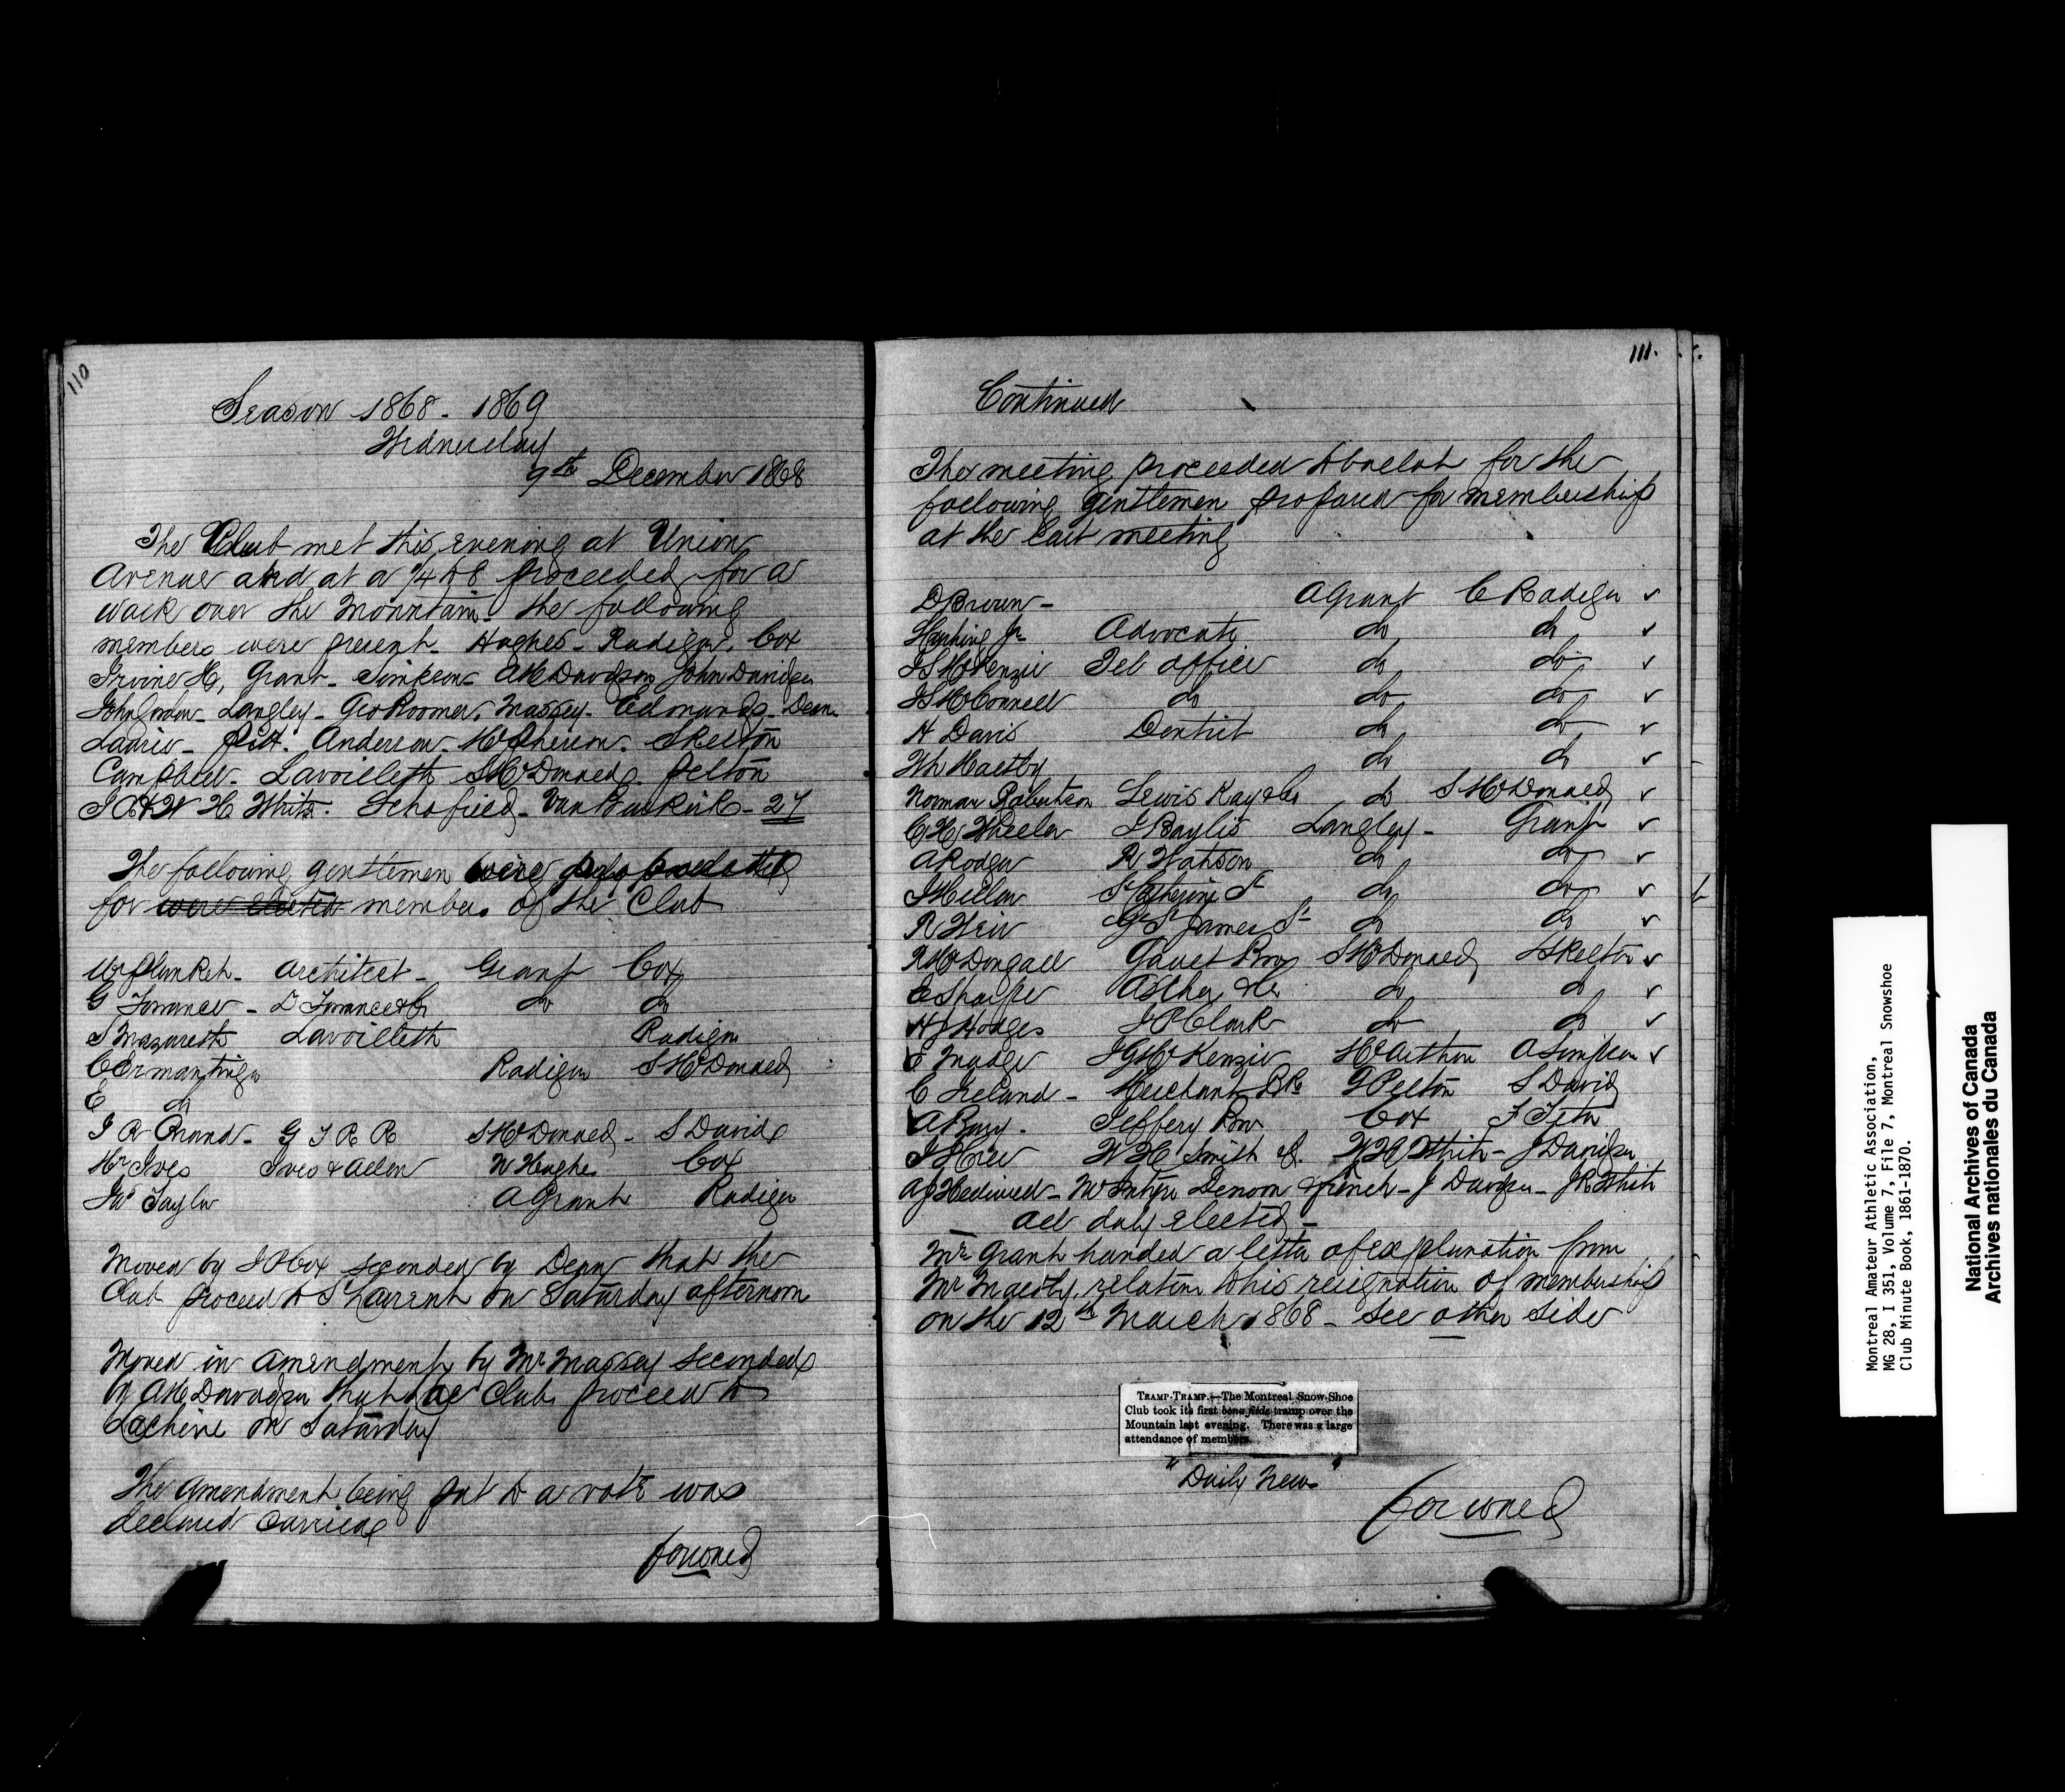 110
Season 1868 - 1869
Wednesday
9th December 1868
The Club met this evening at Union
Avenue and at a 1/4 to 8 proceeded for a
walk over the Mountain - the following
members were present - Hughes - Radiger. Cox
Irvine H, Grant - Simpson - A H Davidson, John Davidson
John Gordon - Langley - Geo Roomer. Massey - Edmunds - Dean
Laurie - Pitt. Anderson - McPherson. Skelton
Campbell - Lavoilleth S McDonald Pelton
J R & W H White. Schofield - Van Buskirk - 27
The following gentlemen were
for were elected members of the Club
Mr Plunket - Architect - Grant Cox
G Torrance - D Torrance & Co do do
S Nazareth Lavoilleth Radiger
C Ermantinger Radiger S McDonald
E do
J R Brand - G T R R S McDonald - S David
Mr Ives Ives & Allen W Hughes Cox
Jno Taylor A Grant Radiger
Moved by J P Cox seconded by Dean that the
Club proceed to St Laurent on Saturday afternoon
Moved in amendment by Mr Massey seconded
by A H Davidson that the Club proceed to
Lachine on Saturday
The amendment being put to a vote was
declared carried
forward
111.
Continued
The meeting proceeded to ballot for the
following gentlemen proposed for membership
at the last meeting
D Brown - A Grant C Radiger ✓
Jr Advocate do do ✓
J S McKenzie Tel office do do ✓
J S McConnell do do do ✓
H Davis Dentist do do ✓
Wm Maltby do do ✓
Norman Robertson Lewis Kay & Co do S McDonald ✓
C H Wheeler J Baylis Langley - Grant ✓
A Rodger R Watson do do ✓
J Mellon St Catherine St do do ✓
R Weir Gt St James St do do ✓
R McDougall Gault Bros S McDonald Skelton ✓
E Sharpe do do ✓
H J Hodges J P Clark do do ✓
E Madge J G McKenzie McArthur A Simpson ✓
C Ireland - Merchants Bk G Pelton S David
A Cox
J W H Smith W H White - J Davidson
McIntyre Denoon & French - J Davidson - J R White
all duly elected -
Mr Grant handed a letter of explanation from
Mr Maltby, relation to his resignation of membership
on the 12th March 1868 - see other side
TRAMP-TRAMP.—The Montreal Snow-Shoe
Club took its first bona fide tramp over the
Mountain last evening. There was a large
attendance of members.
"Daily News"
forward
Montreal Amateur Athletic Association,
MG 28, I 351, Volume 7, File 7, Montreal Snowshoe
Club Minute Book, 1861-1870.
National Archives of Canada
Archives nationales du Canada